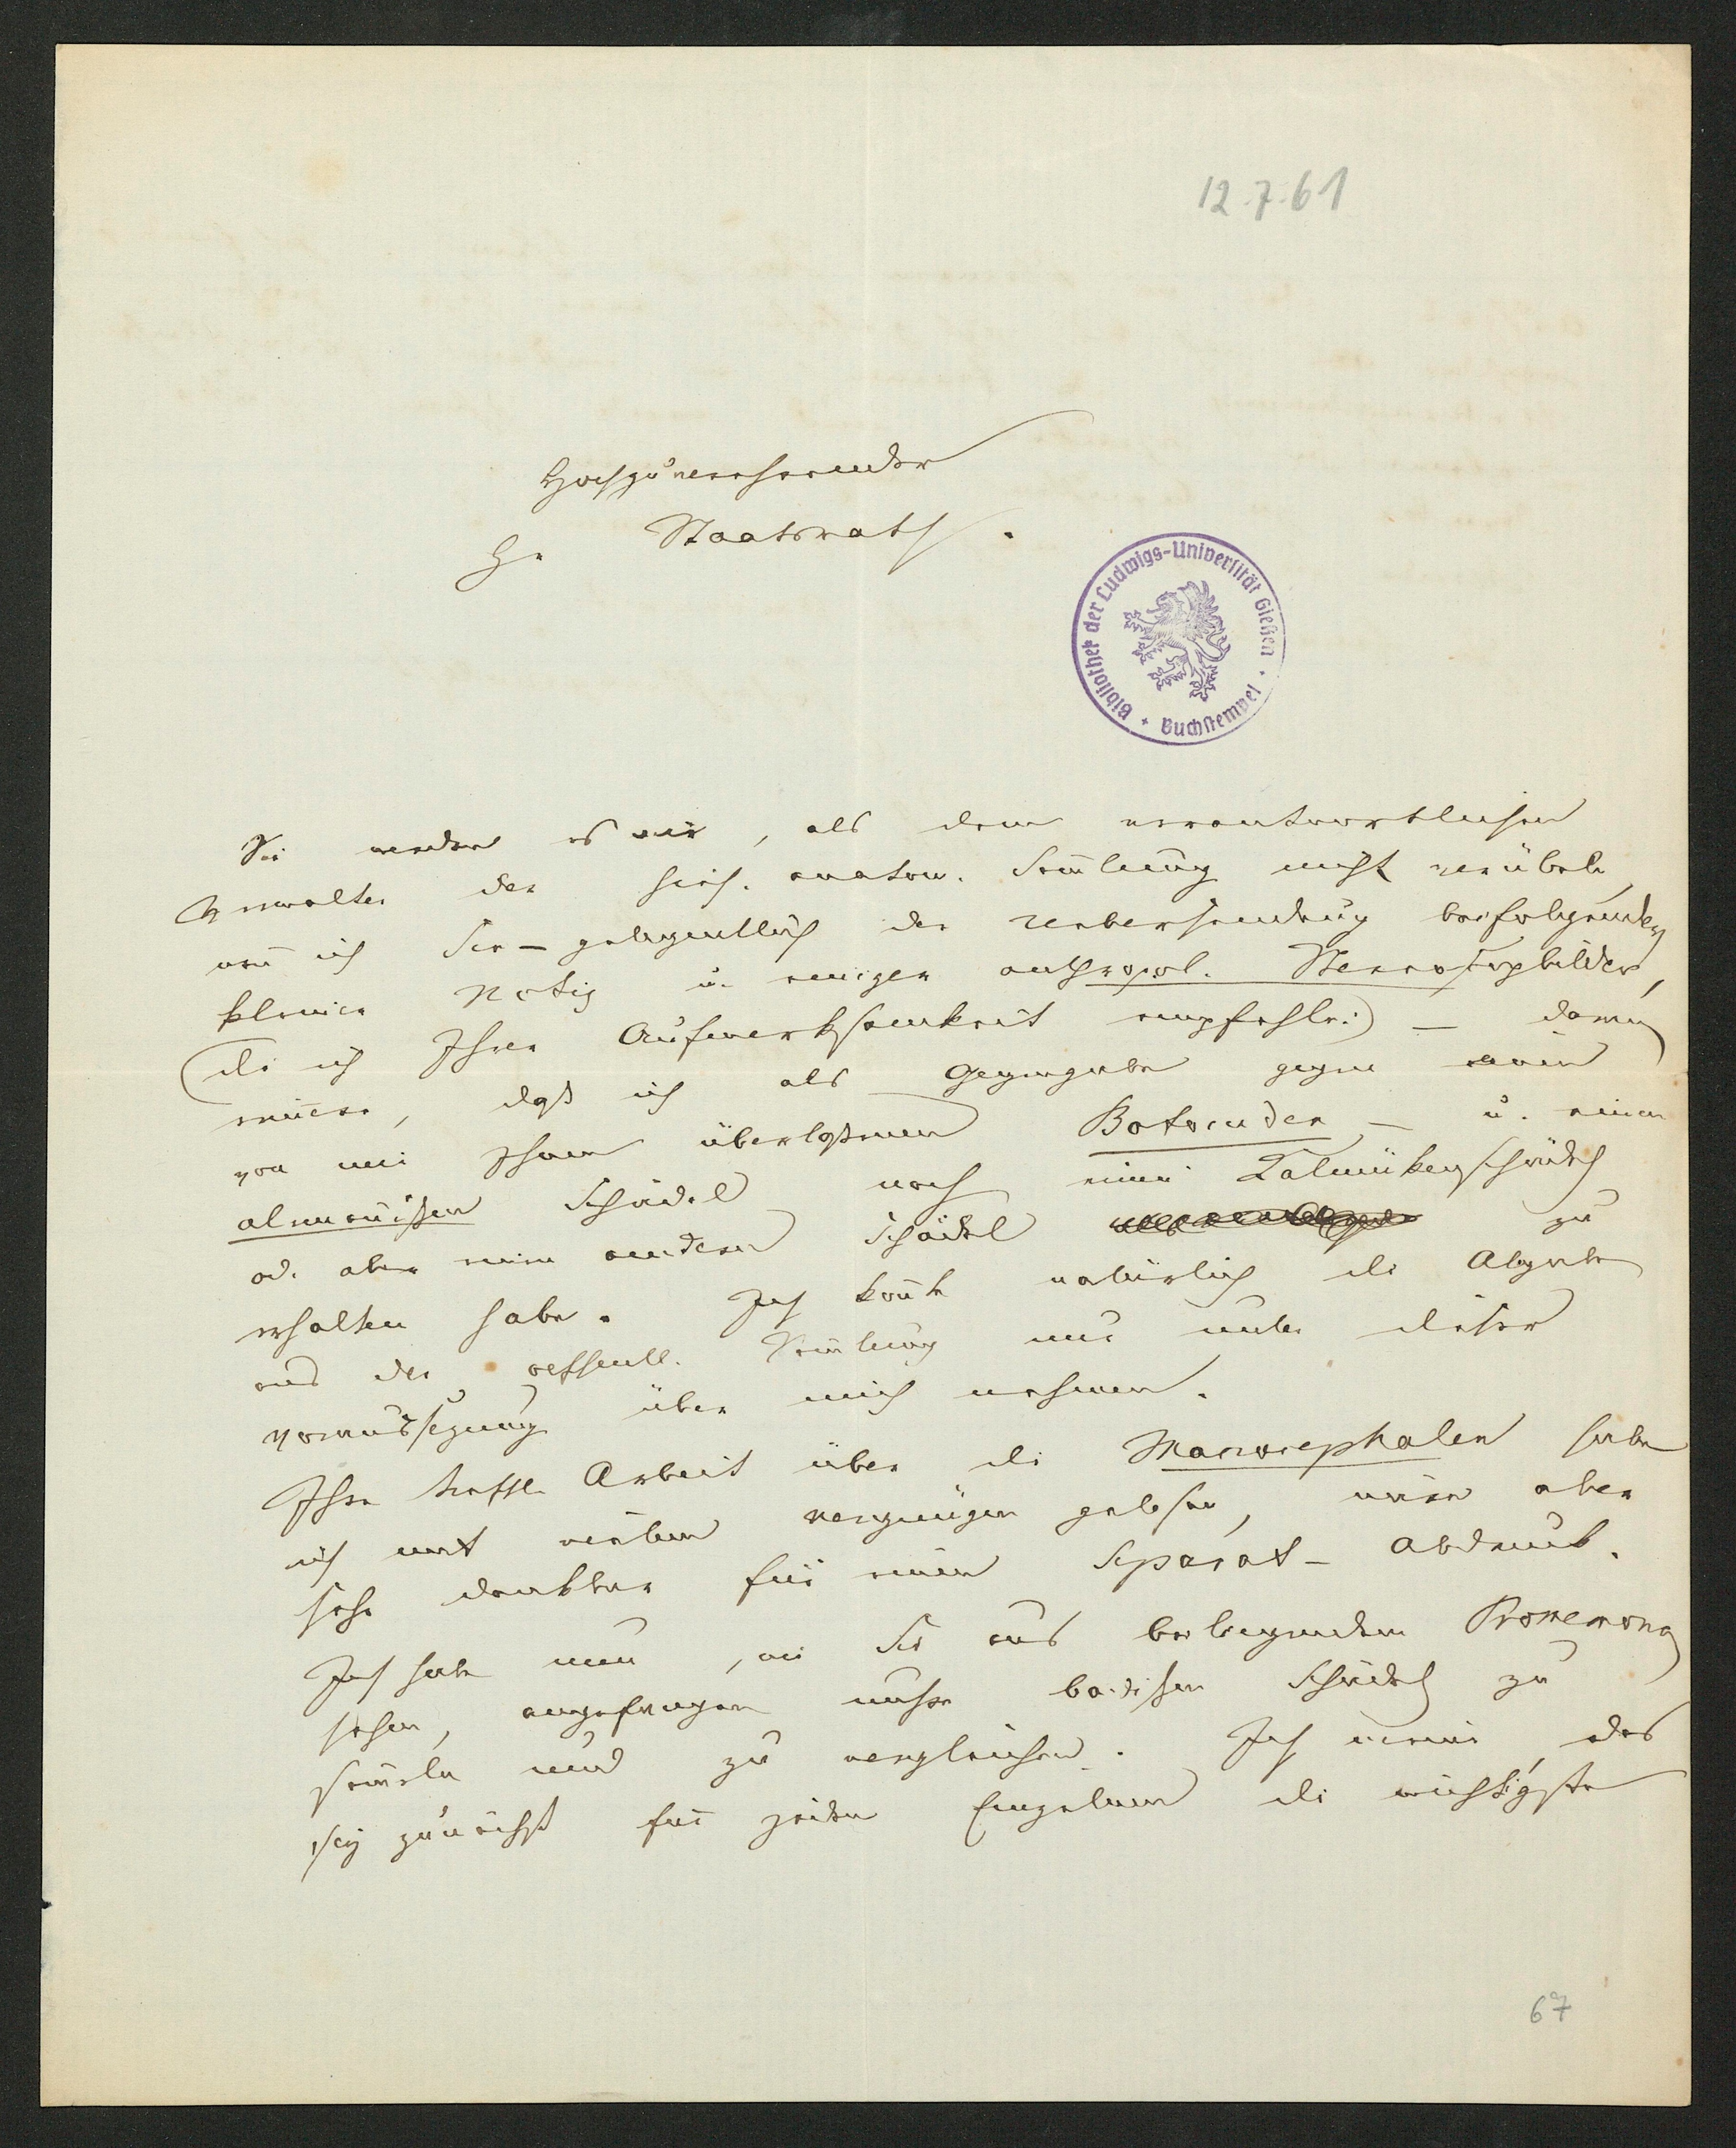 12.7.61
Hochzuverehrender
Hr Staatsrath.
Bibliothek der Ludwigs-Universität Gießen
Buchstempel
Sie werden es mir, als dem verantwortlichen
Verwalter der hies. anatom. Sam̄lung nicht verübeln,
wen̄ ich Sie – gelegentlich der Uebersendung beifolgender
kleiner Notiz u. einiger anthropol. Stereoscopbilder,
(die ich Ihrer Aufmerksamkeit empfehle:) – daran
erin̄ere, daß ich als Gegengabe gegen einen
von mir Ihnen überlassenen Botocuden – u. einen
alemanischen Schädel noch einen Kalmükenschädel
od. aber einen anderen Schädel zu
erhalten habe. Ich kon̄te natürlich die Abgabe
aus der oeffentl. Sam̄lung nur unter dieser
Voraussetzung über mich nehmen.
Ihre treffl. Arbeit über die Macrocephalen habe
ich mit vielem Vergnügen gelesen, wäre aber
sehr dankbar für einen Separat-Abdruck.
Ich habe nun, wie Sie aus beiliegendem
sehen, angefangen unsere badischen Schädel zu
sam̄eln und zu vergleichen. Ich meine, das
sey zunächst für jeden Einzelnen die wichtigste
67